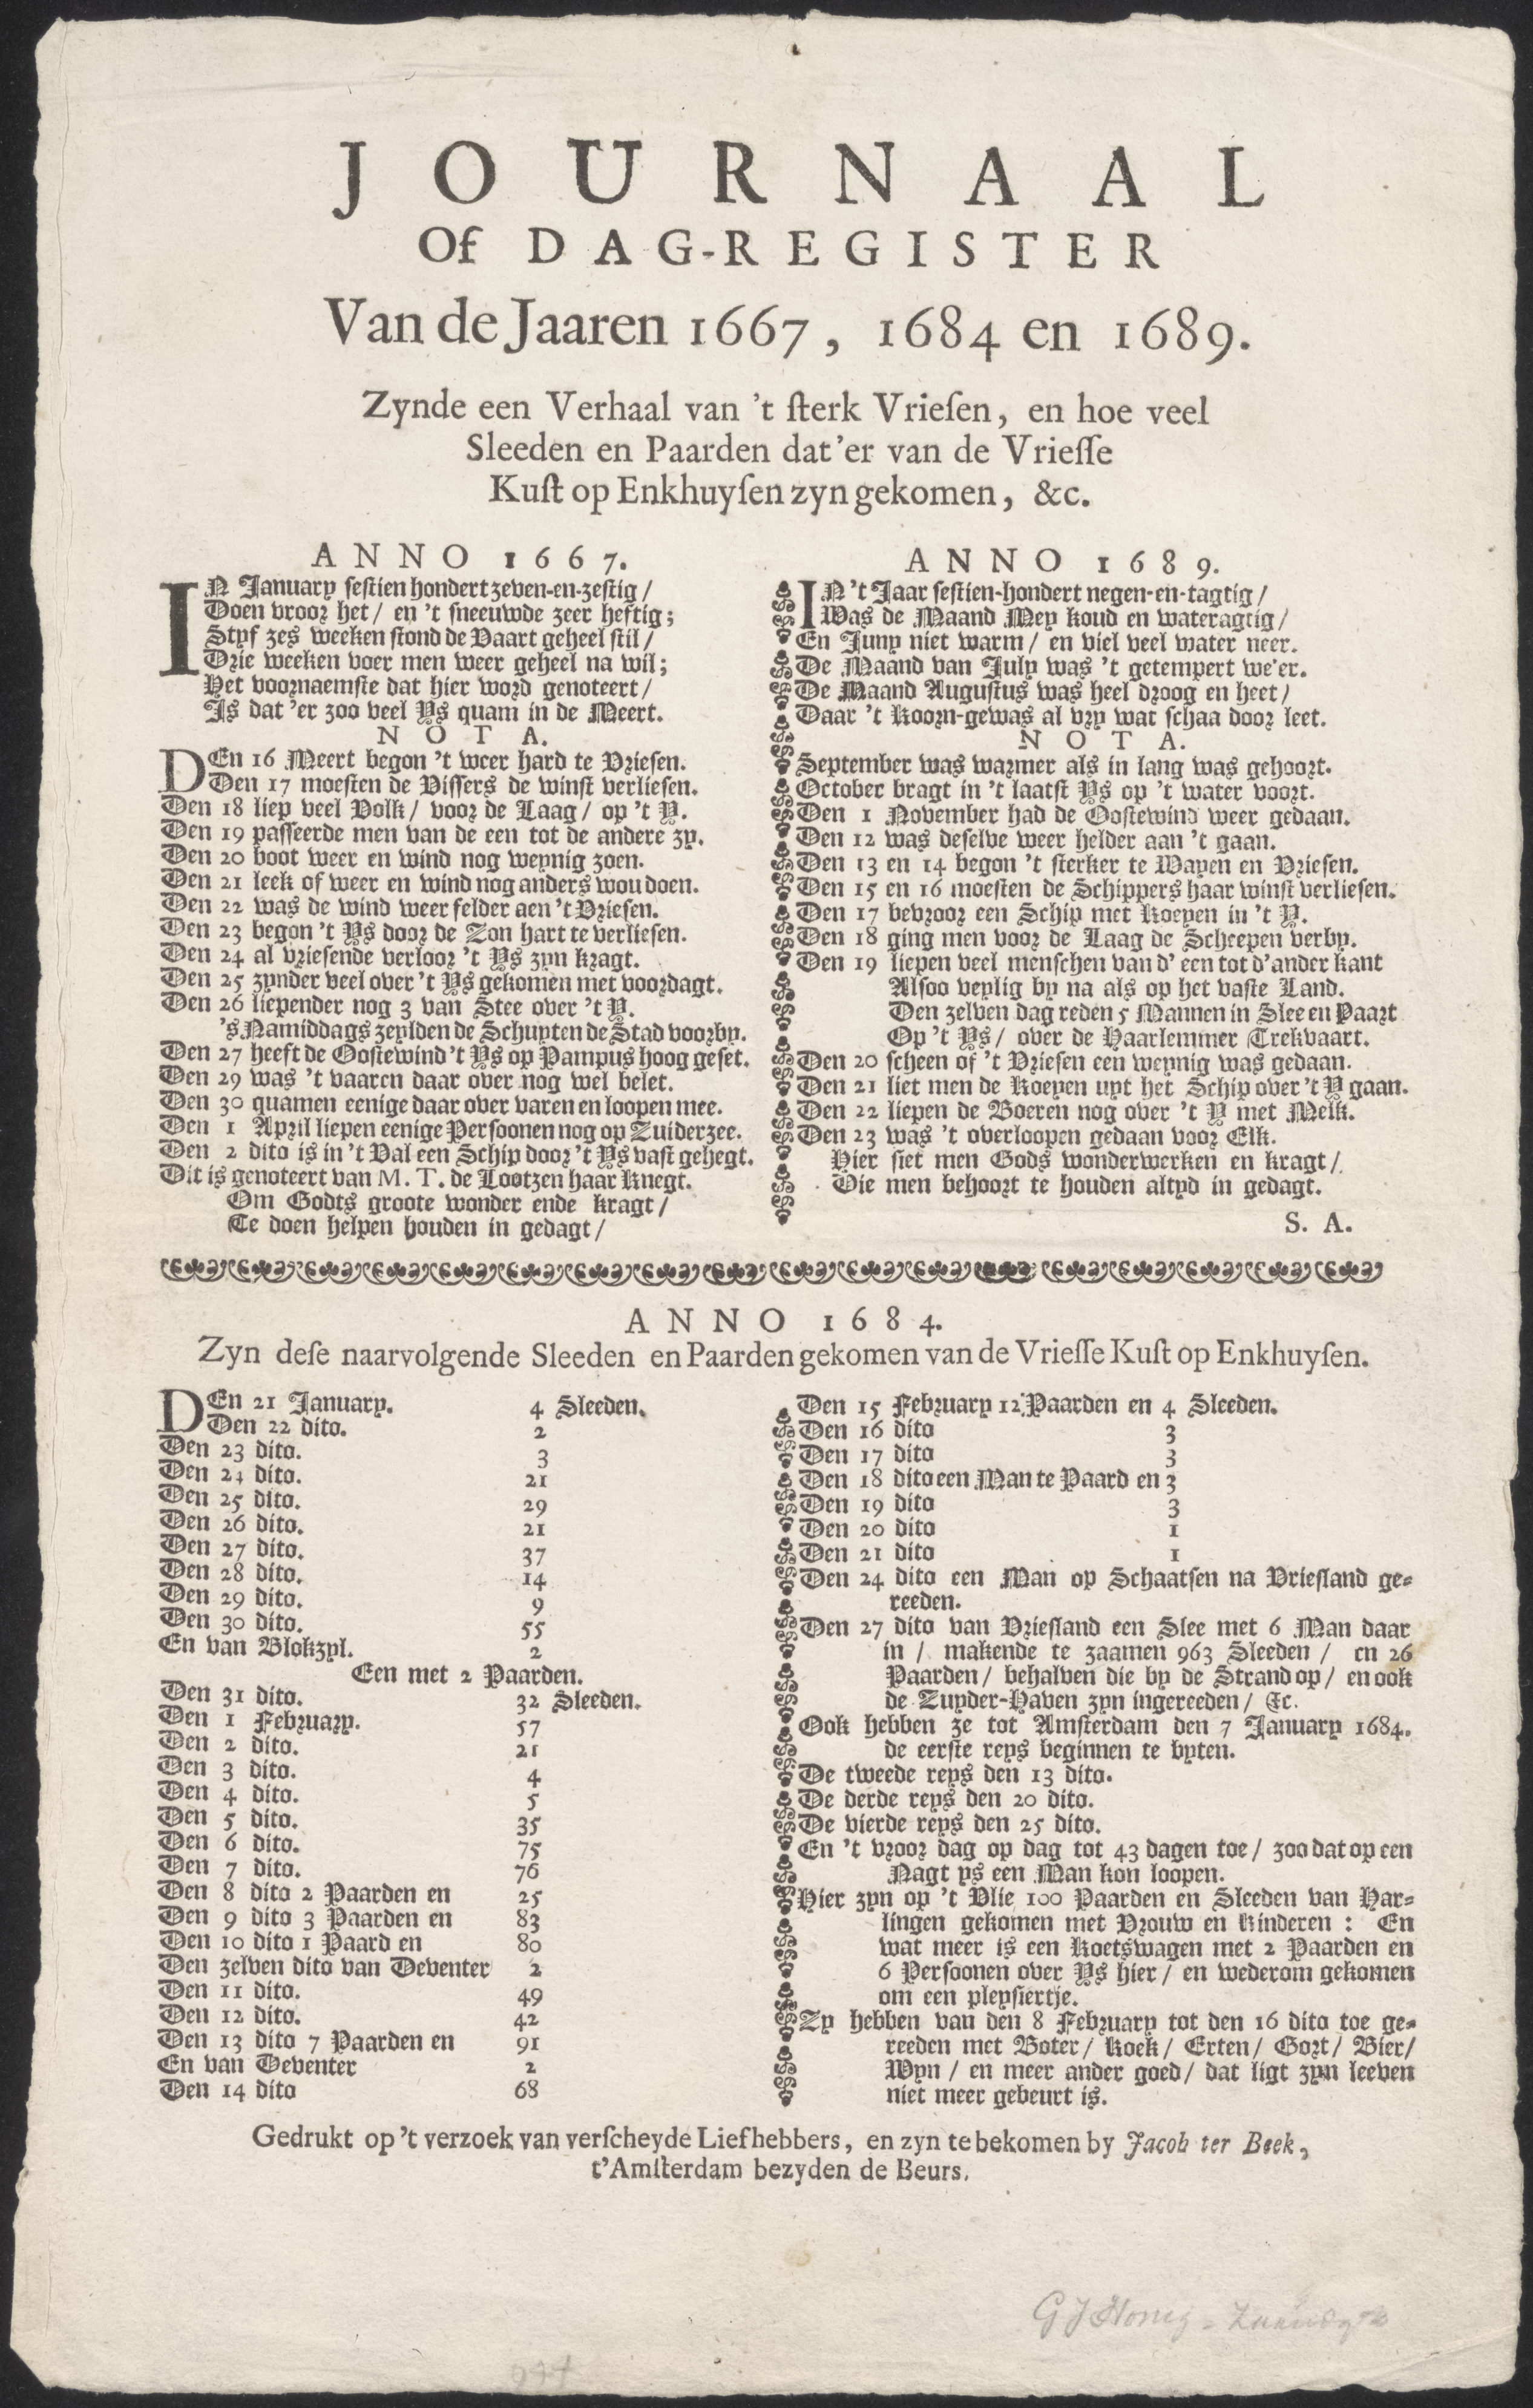 JOURNAAL
Of DAG-REGISTER
Van de Jaaren 1667, 1684 en 1689.
Zynde een Verhaal van 't sterk Vriesen, en hoe veel
Sleeden en Paarden dat 'er van de Vriesse
Kust op Enkhuysen zyn gekomen, &c.
ANNO 1667.
IN January sestien hondert zeven-en-zestig /
Doen vroor het / en 't sneeuwde zeer heftig;
Styf zes weeken stond de Vaart geheel stil /
Drie weeken voer men weer geheel na wil;
Het voornaemste dat hier word genoteert /
Is dat 'er zoo veel Ys quam in de Meert.
NOTA.
DEn 16 Meert begon 't weer hard te Vriesen.
Den 17 moesten de Vissers de winst verliesen.
Den 18 liep veel Volk / voor de Laag / op 't Y.
Den 19 passeerde men van de een tot de andere zy.
Den 20 boot weer en wind nog weynig zoen.
Den 21 leek of weer en wind nog anders wou doen.
Den 22 was de wind weer felder aen 't Vriesen.
Den 23 begon 't Ys door de Zon hart te verliesen.
Den 24 al vriesende verloor 't Ys zyn kragt.
Den 25 zynder veel over 't Ys gekomen met voordagt.
Den 26 liepender nog 3 van Stee over 't Y.
's Namiddags zeylden de Schuyten de Stad voorby.
Den 27 heeft de Oostewind 't Ys op Pampus hoog geset.
Den 29 was 't vaaren daar over nog wel belet.
Den 30 quamen eenige daar over varen en loopen mee.
Den 1 April liepen eenige Persoonen nog op Zuiderzee.
Den 2 dito is in 't Val een Schip door 't Ys vast gehegt.
Dit is genoteert van M. T. de Lootzen haar Knegt.
Om Godts groote wonder ende kragt /
Te doen helpen houden in gedagt /
ANNO 1689.
IN 't Jaar sestien-hondert negen-en-tagtig /
Was de Maand Mey koud en wateragtig /
En Juny niet warm / en viel veel water neer.
De Maand van July was 't getempert we'er.
De Maand Augustus was heel droog en heet /
Daar 't Koorn-gewas al vry wat schaa door leet.
NOTA.
September was warmer als in lang was gehoort.
October bragt in 't laatst Ys op 't water voort.
Den 1 November had de Oostewind weer gedaan.
Den 12 was deselve weer helder aan 't gaan.
Den 13 en 14 begon 't sterker te Wayen en Vriesen.
Den 15 en 16 moesten de Schippers haar winst verliesen.
Den 17 bevroor een Schip met Koeyen in 't Y.
Den 18 ging men voor de Laag de Scheepen verby.
Den 19 liepen veel menschen van d' een tot d'ander kant
Alsoo veylig by na als op het vaste Land.
Den zelven dag reden 5 Mannen in Slee en Paart
Op 't Ys / over de Haarlemmer Trekvaart.
Den 20 scheen of 't Vriesen een weynig was gedaan.
Den 21 liet men de Koeyen uyt het Schip over 't Y gaan.
Den 22 liepen de Boeren nog over 't Y met Melk.
Den 23 was 't overloopen gedaan voor Elk.
Hier siet men Gods wonderwerken en kragt /
Die men behoort te houden altyd in gedagt.
S. A.
ANNO 1684.
Zyn dese naarvolgende Sleeden en Paarden gekomen van de Vriesse Kust op Enkhuysen.
DEn 21 January. 4 Sleeden.
Den 22 dito. 2
Den 23 dito. 3
Den 24 dito. 21
Den 25 dito. 29
Den 26 dito. 21
Den 27 dito. 37
Den 28 dito. 14
Den 29 dito. 9
Den 30 dito. 55
En van Blokzyl. 2
Een met 2 Paarden.
Den 31 dito. 32 Sleeden.
Den 1 February. 57
Den 2 dito. 21
Den 3 dito. 4
Den 4 dito. 5
Den 5 dito. 35
Den 6 dito. 75
Den 7 dito. 76
Den 8 dito 2 Paarden en 25
Den 9 dito 3 Paarden en 83
Den 10 dito 1 Paard en 80
Den zelven dito van Deventer 2
Den 11 dito. 49
Den 12 dito. 42
Den 13 dito 7 Paarden en 91
En van Deventer 2
Den 14 dito 68
Den 15 February 12 Paarden en 4 Sleeden.
Den 16 dito 3
Den 17 dito 3
Den 18 dito een Man te Paard en 3
Den 19 dito 3
Den 20 dito 1
Den 21 dito 1
Den 24 dito een Man op Schaatsen na Vriesland ge-
reeden.
Den 27 dito van Vriesland een Slee met 6 Man daar
in / makende te zaamen 963 Sleeden / en 26
Paarden / behalven die by de Strand op / en ook
de Zuyder-Haven zyn ingereeden / &c.
Ook hebben ze tot Amsterdam den 7 January 1684.
de eerste reys beginnen te byten.
De tweede reys den 13 dito.
De derde reys den 20 dito.
De vierde reys den 25 dito.
En 't vroor dag op dag tot 43 dagen toe / zoo dat op een
Nagt ys een Man kon loopen.
Hier zyn op 't Vlie 100 Paarden en Sleeden van Har-
lingen gekomen met Vrouw en Kinderen : En
wat meer is een Koetswagen met 2 Paarden en
6 Persoonen over Ys hier / en wederom gekomen
om een pleysiertje.
Zy hebben van den 8 February tot den 16 dito toe ge-
reeden met Boter / Koek / Erten / Gort / Bier /
Wyn / en meer ander goed / dat ligt zyn leeven
niet meer gebeurt is.
Gedrukt op 't verzoek van verscheyde Liefhebbers, en zyn te bekomen by Jacob ter Beek,
t'Amsterdam bezyden de Beurs.
G J Honig